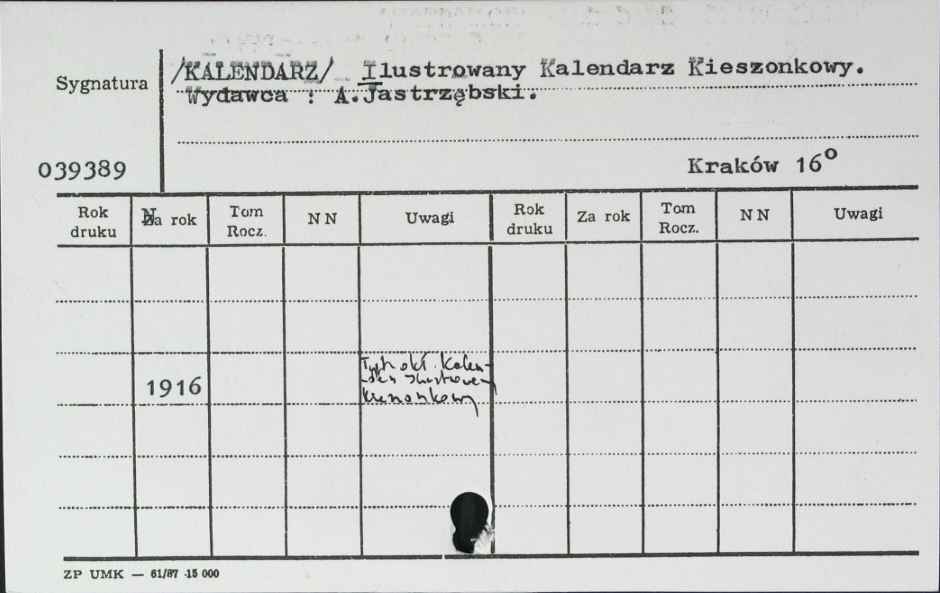 /KALENDARZ/ Ilustrowany Kalendarz Kieszonkowy.
Sygnatura
Wydawca : A.Jastrzębski.
039389
Kraków 16°
Rok druku
Na rok
Tom Rocz.
NN
Uwagi
Rok druku
Za rok
Tom Rocz.
NN
Uwagi
1916
Tyt. okł. Kalen-
Kieszonkowy
ZP UMK — 61/87 15 000